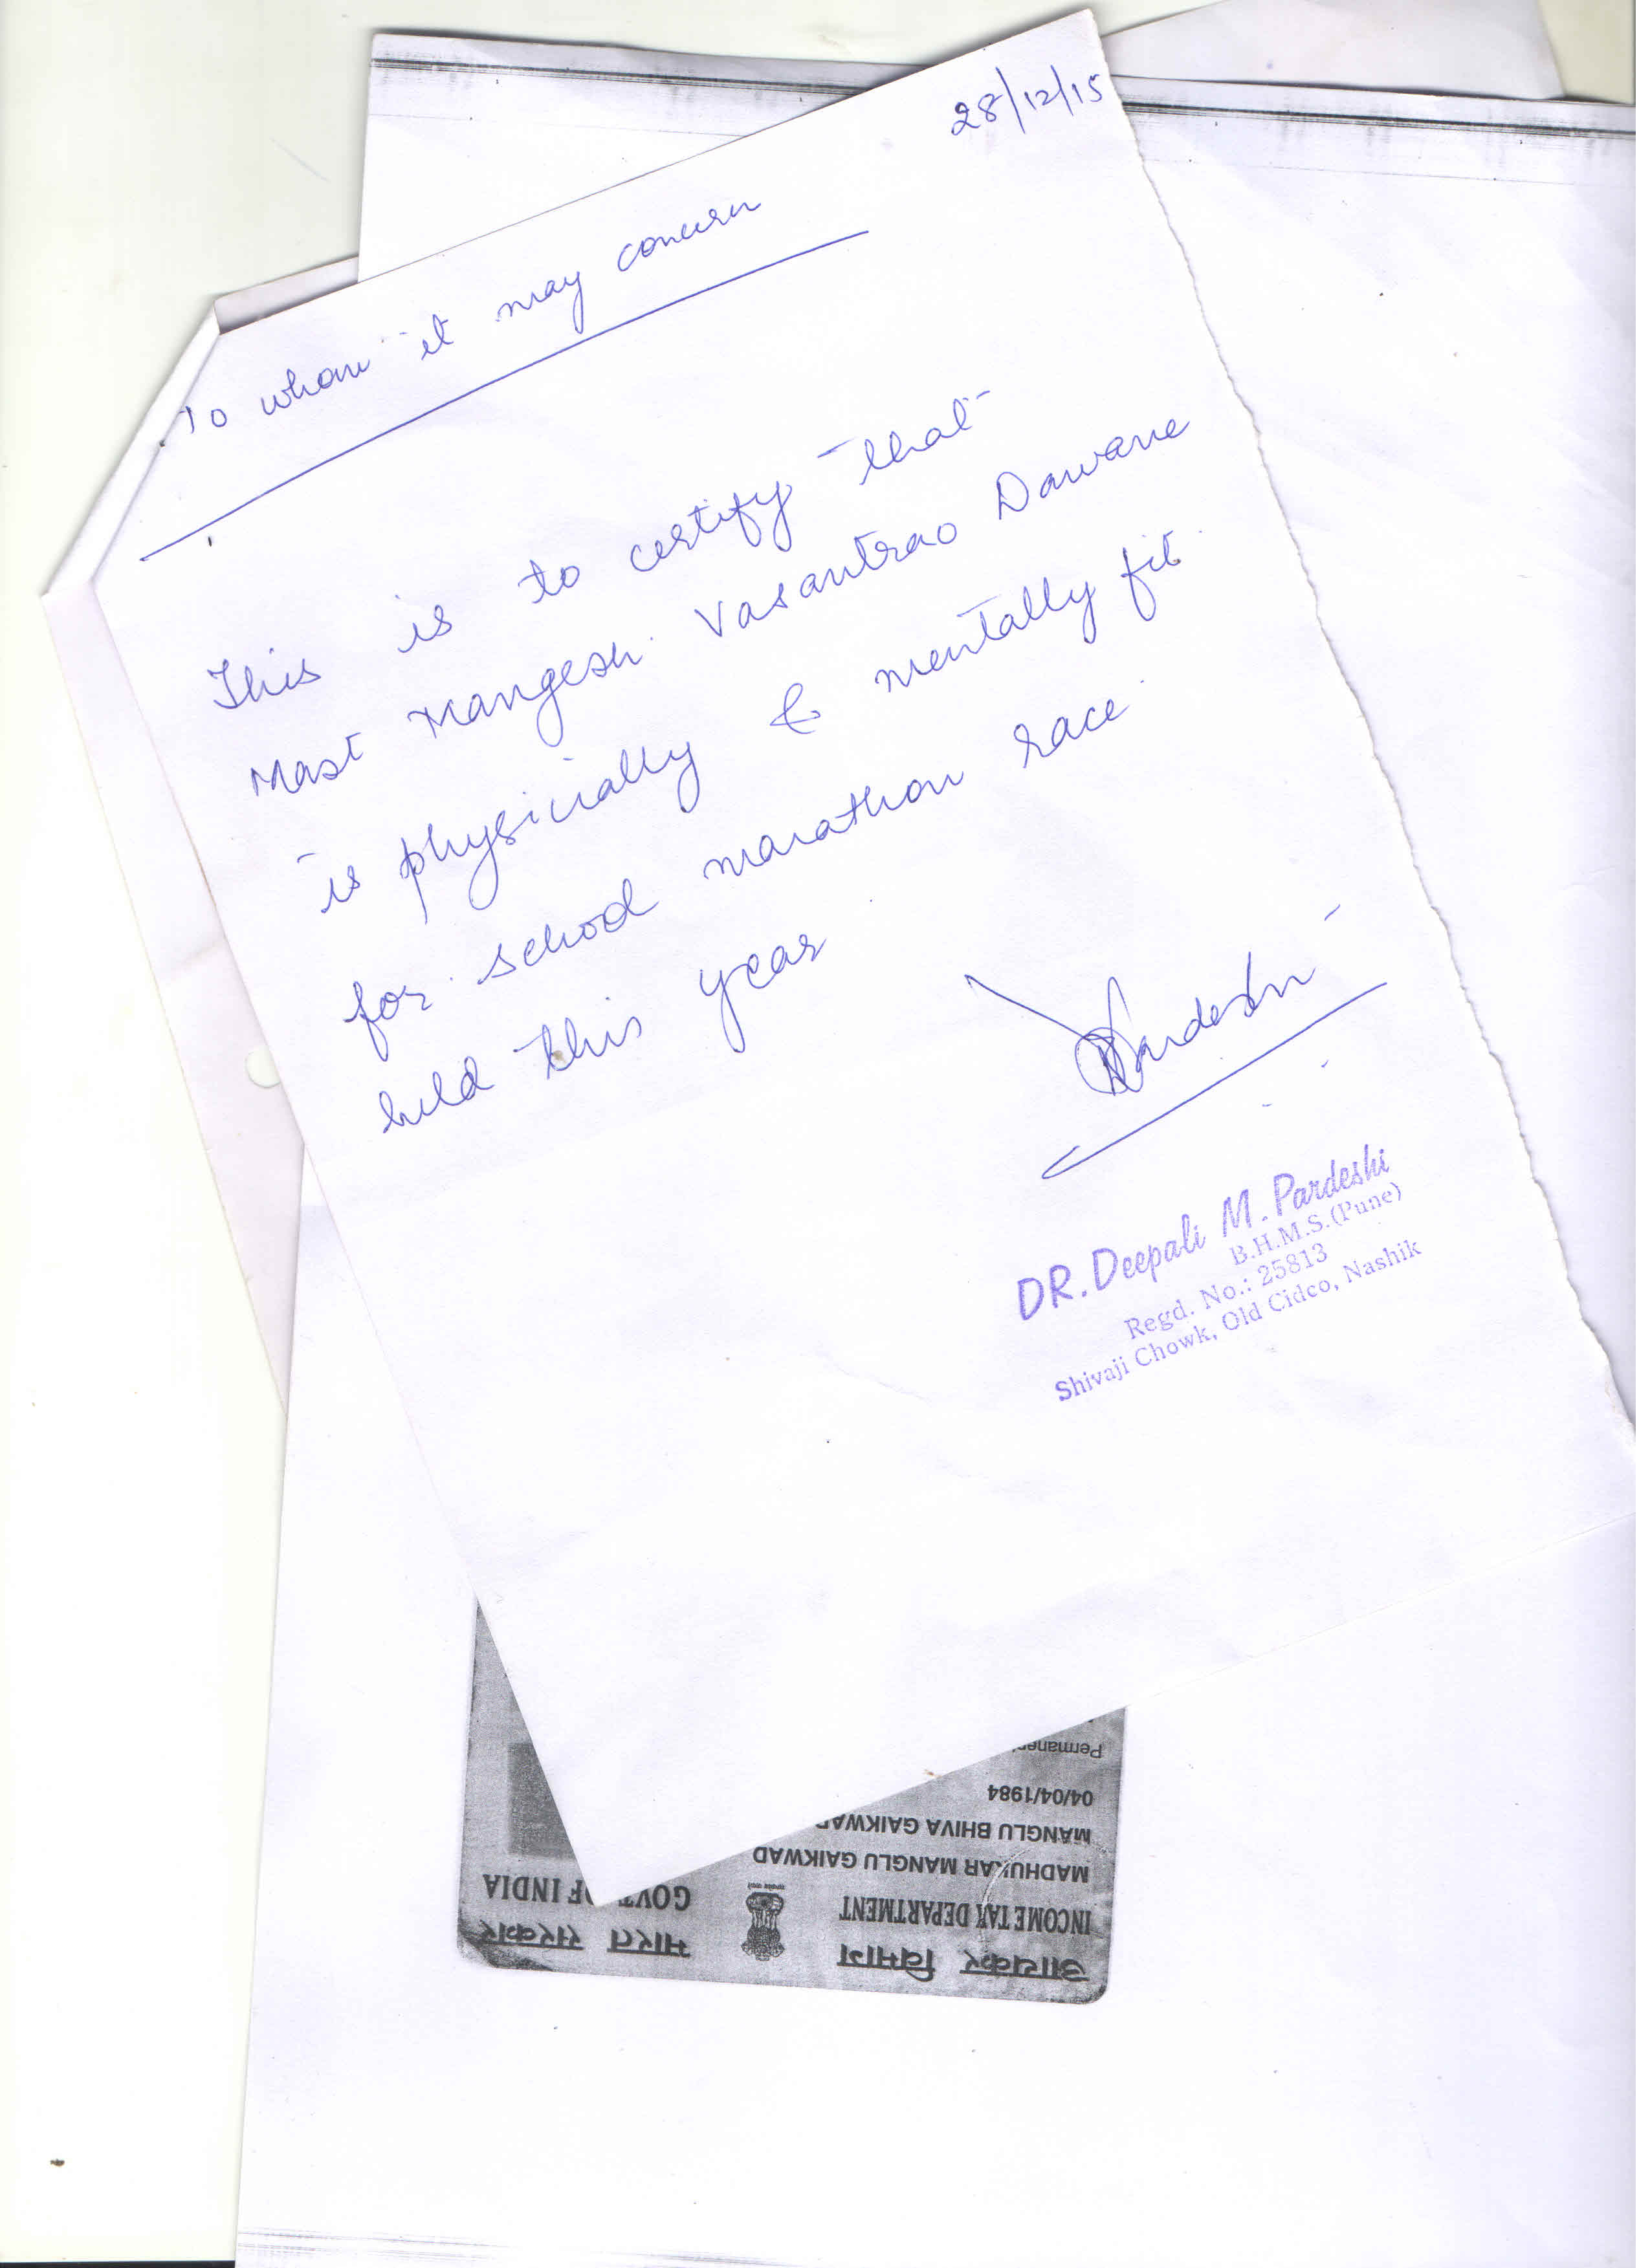 28/12/15
To whom it may concern
This is to certify that
Mast Mangesh. Vasantrao Dawane
is physically & mentally fit
for school marathon race
held this year
Pardeshi
DR. Deepali M. Pardeshi
B.H.M.S. (Pune)
Regd. No.: 25813
Shivaji Chowk, Old Cidco, Nashik
आयकर विभाग
भारत सरकार
INCOME TAX DEPARTMENT
GOVT. OF INDIA
MADHUKAR MANGLU GAIKWAD
MANGLU BHIVA GAIKWAD
04/04/1984
Permanen